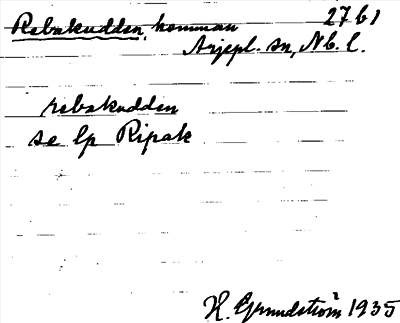 Rebakudden, komman 27 b 1
Arjepl. sn, Nb. l.
rebakudden
se lp Ripak
H. Grundström 1935